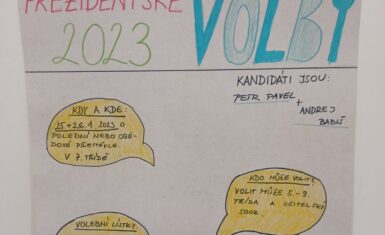 PREZIDENTSKÉ VOLBY
2023
KANDIDÁTI JSOU:
PETR PAVEL
+
ANDREJ
BABIŠ
KDY A KDE:
25+26.1 2023 O
POLEDNÍ NEBO OBĚ-
DOVÉ PŘESTÁVCE.
V 7. TŘÍDĚ
KDO MŮŽE VOLIT?
VOLIT MŮŽE 5.-9.
TŘÍDA A UČITELSKÝ
SBOR
VOLEBNÍ LÍSTKY